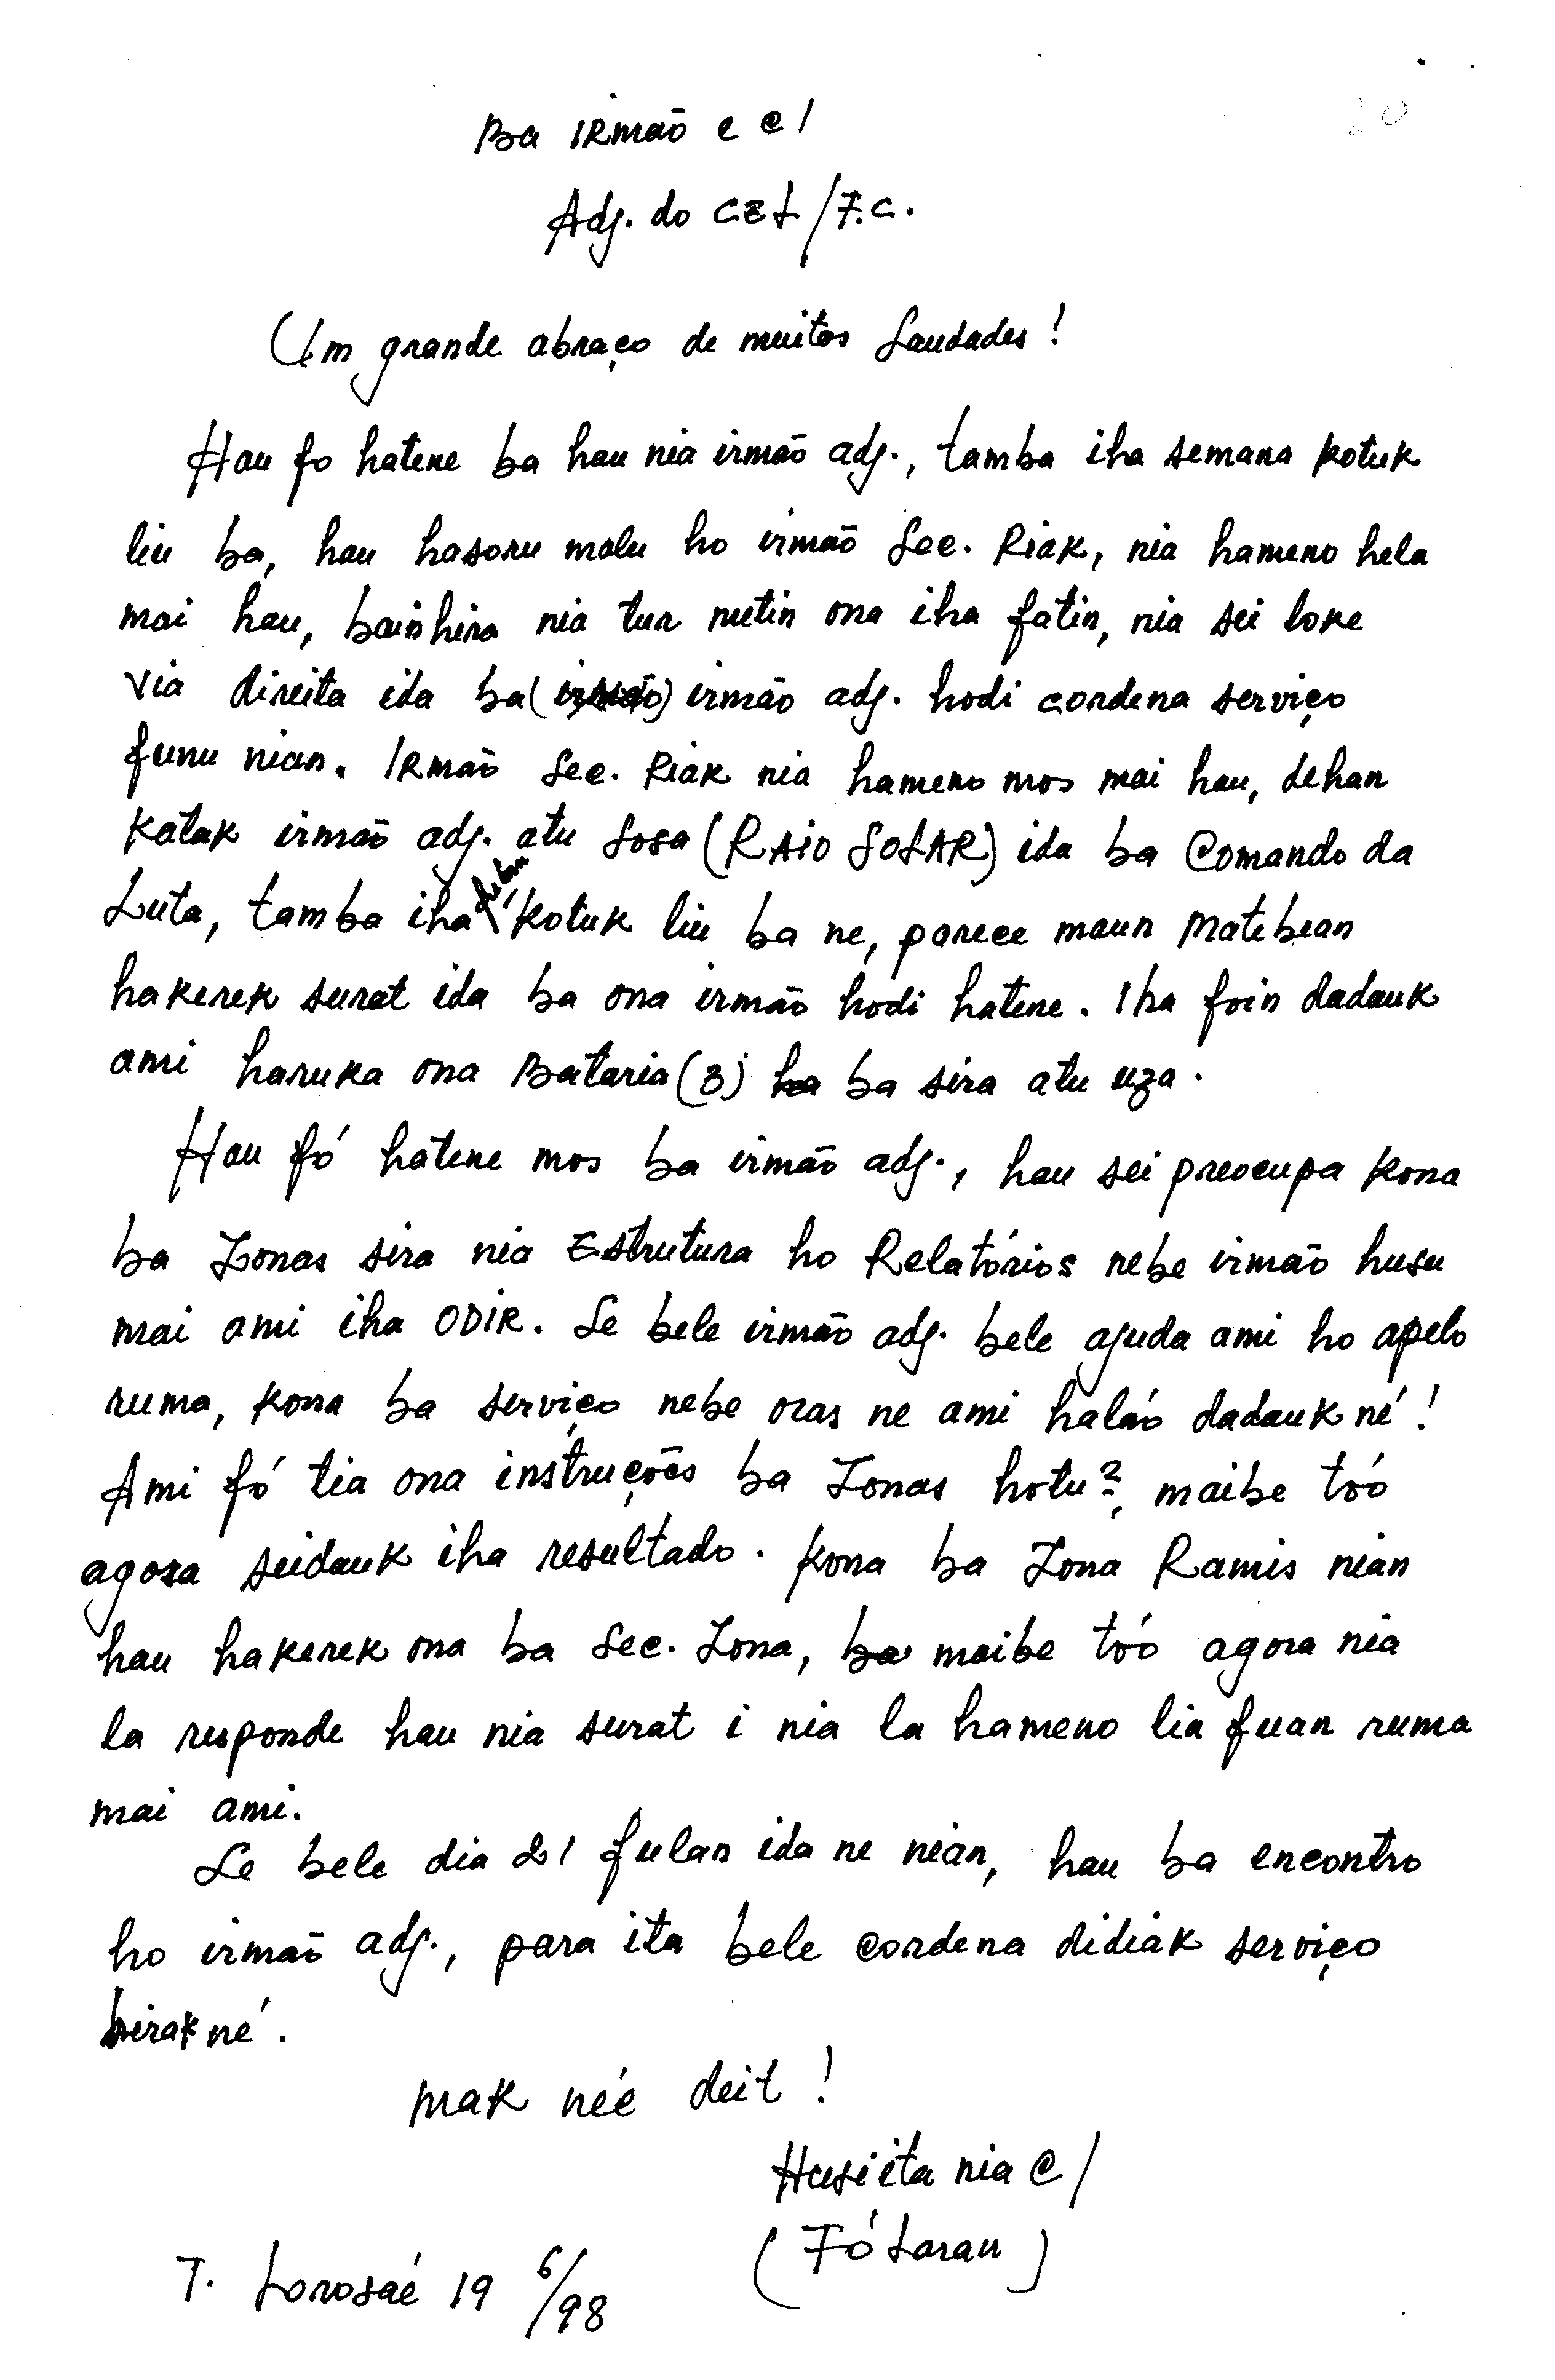 Ba IRmão e C/
Adj. do CEL/F.C.
Um grande abraço de muitos Saudades!
Hau fo hatene ba hau nia irmão adj., tamba iha semana kotuk
liu ba, hau hasoru malu ho irmão Sec. Riak, nia hameno hela
mai hau, bainhira nia tur metin ona iha fatin, nia sei loke
via direita ida ba (irmão) irmão adj. hodi cordena serviço
funu nian. IRmão Sec. Riak nia hameno mos mai hau, dehan
katak irmão adj. atu Sosa (RAIO SOLAR) ida ba Comando da
Luta, tamba iha kotuk liu ba ne, parece maun Matebean
hakerek surat ida ba ona irmão hodi hatene. Iha foin dadauk
ami haruka ona Bataria (3) ba sira atu uza.
Hau fó hatene mos ba irmão adj., hau sei preocupa kona
ba Zonas sira nia Estrutura ho Relatórios nebe irmão husu
mai ami iha ODIR. Se bele irmão adj. bele ajuda ami ho apelo
ruma, kona ba serviço nebe oras ne ami haláo dadauk né!
Ami fó tia ona instruções ba Zonas hotu?, maibe tóo
agora seidauk iha resultado. Kona ba Zona Ramis nian
hau hakerek ona ba Sec. Zona, ba maibe tóo agora nia
la responde hau nia surat i nia la hameno lia fuan ruma
mai ami.
Se bele dia 21 fulan ida ne nian, hau ba encontro
ho irmão adj., para ita bele cordena didiak serviço
hirak né.
Mak née deit!
Husi ita nia C/
(Fó Laran)
T. Lorosaé 19 6/98